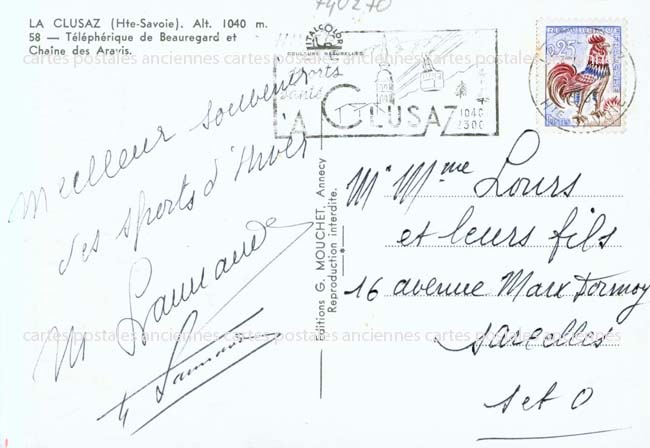 740270
LA CLUSAZ (Hte-Savoie). Alt. 1040 m.
58 — Téléphérique de Beauregard et
Chaîne des Aravis.
ITALCOLOR
COULEURS NATURELLES
LA CLUSAZ
1040
2300
0,25
Meilleur souvenirs
des sports d'hiver
Editions G. MOUCHET, Annecy
Reproduction interdite.
Mr Mme Lours
et leurs fils
16 avenue Marx Dormoy
Sarcelles
S et O
cartes postales anciennes cartes postales anciennes cartes postales anciennes
cartes postales anciennes cartes postales anciennes cartes postales anciennes